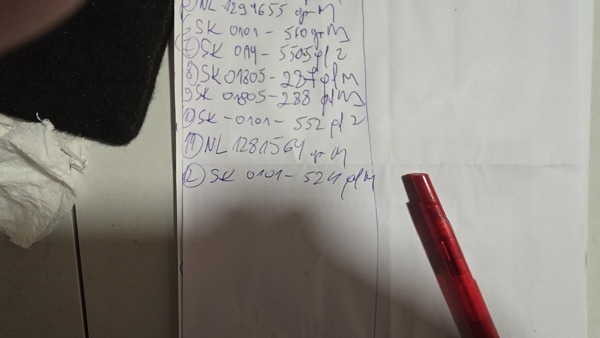 NL 1294655 gr M
SK 0101 - 560 gr M
7) SK 0194 - 5505 pl 2
8) SK 01805 - 287 pl M
9) SK 01805 - 288 pl M
10) SK - 0101 - 552 pl 2
11) NL 1281564 gr M
12) SK 0101 - 524 pl M